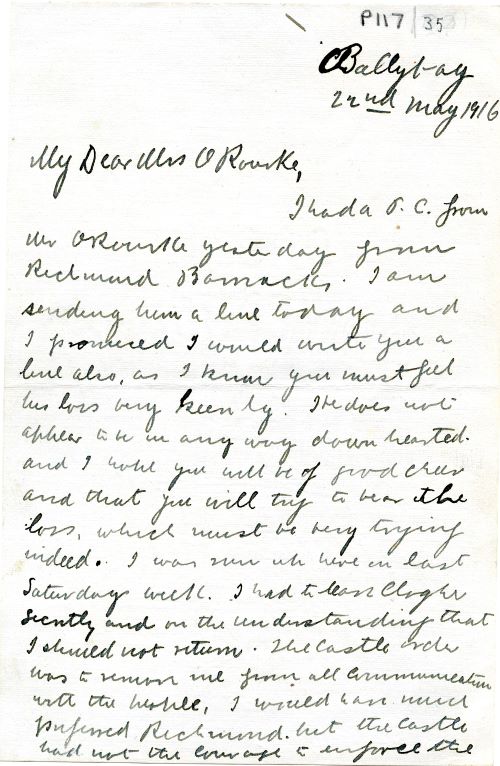 P117/35
Ballybay
22nd May 1916
My Dear Mrs O'Rourke,
I had a P.C. from
Mr O'Rourke yesterday from
Richmond Barracks. I am
sending him a line today and
I promised I would write you a
line also, as I know you must feel
his loss very keenly. He does not
appear to be in any way down hearted.
and I hope you will be of good cheer
and that you will try to bear the
loss, which must be very trying
indeed. I was run up here on last
Saturdays week. I had to leave Clogher
secretly and on the understanding that
I should not return. The Castle order
was to remove me from all communication
with the people, I would have much
preferred Richmond. but the Castle
had not the courage to enforce the